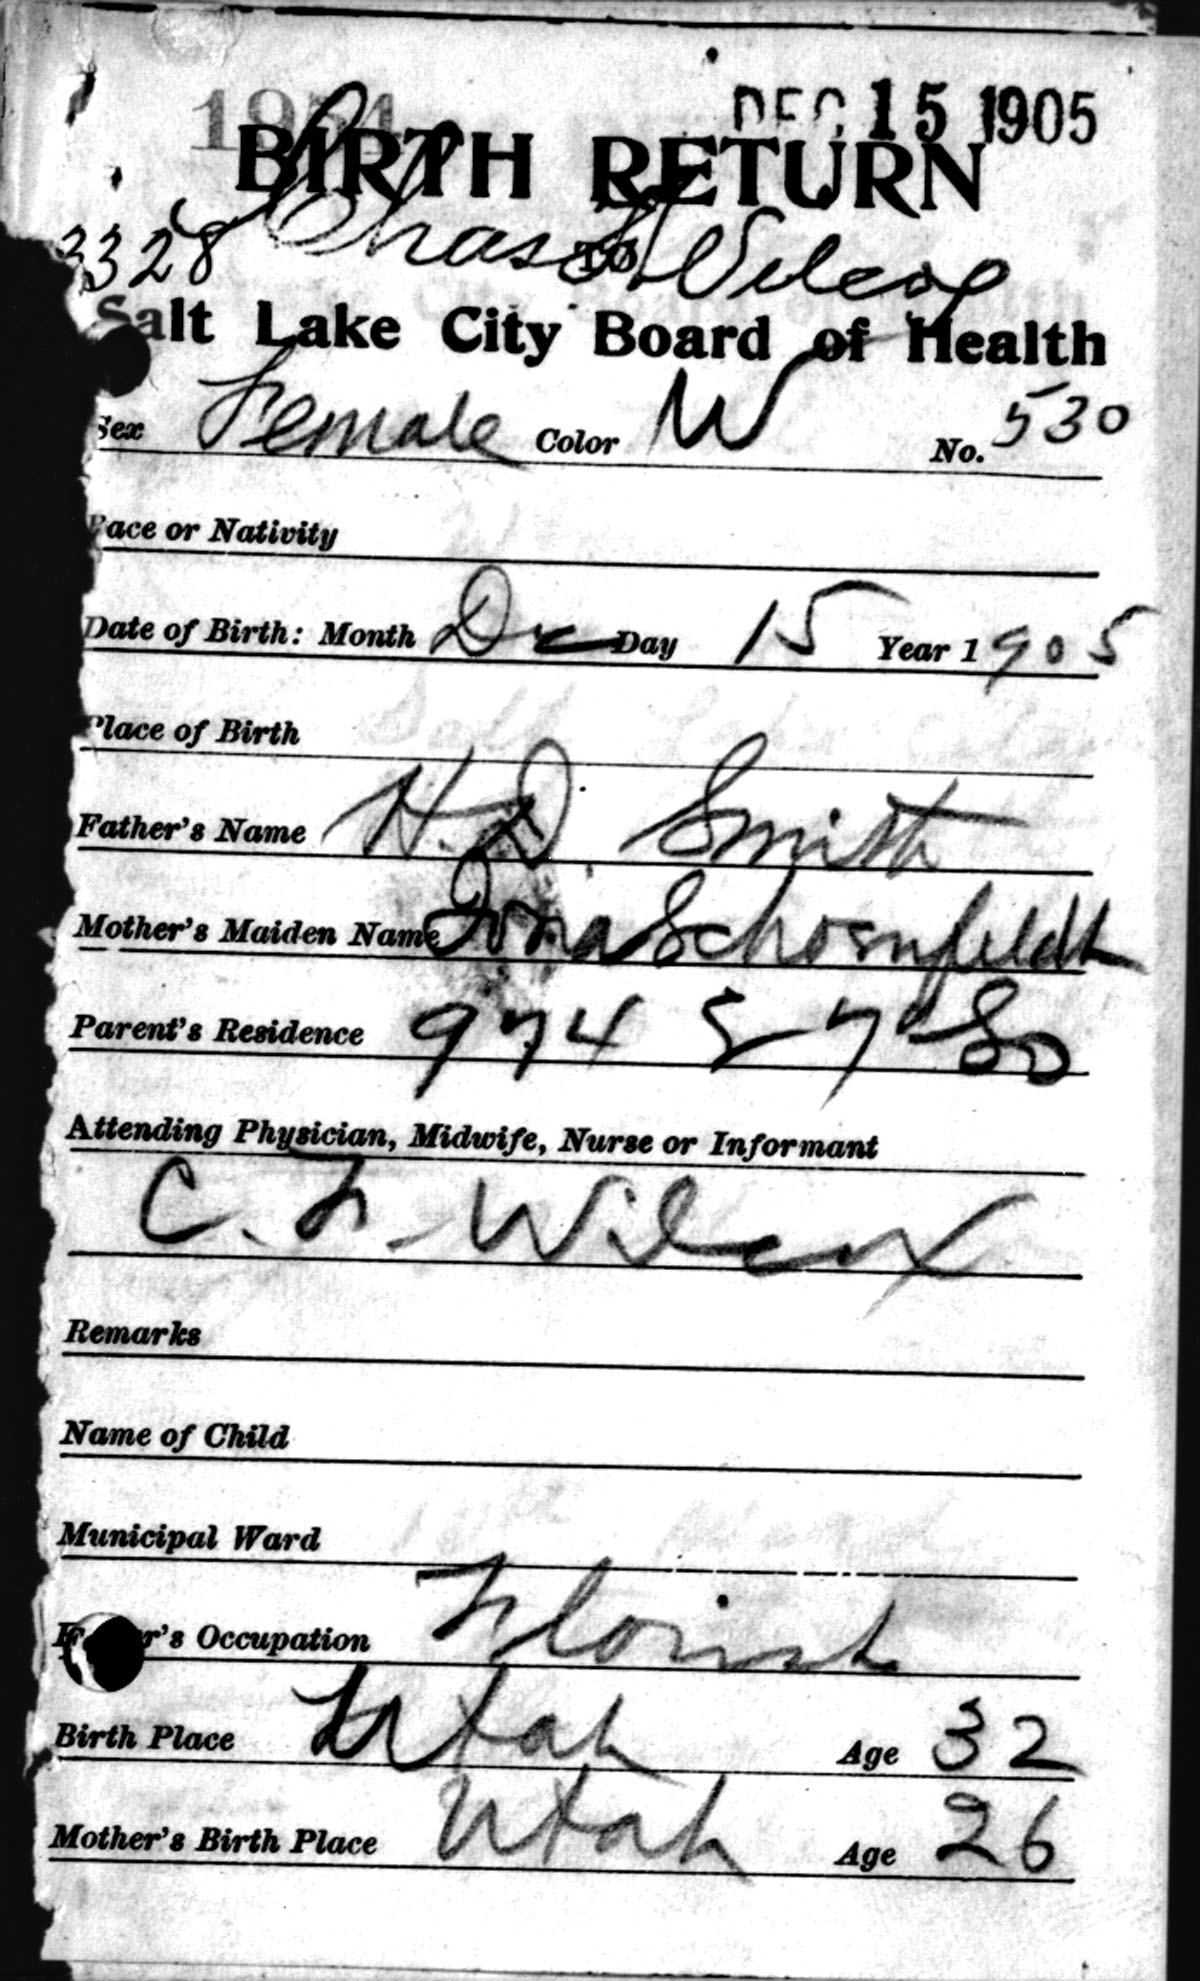 DEC 15 1905
BIRTH RETURN
3328 Chas Wilcox
TO
Salt Lake City Board of Health
Sex Female Color W No. 530
Race or Nativity
Date of Birth: Month Dec Day 15 Year 1905
Place of Birth
Father's Name H. D Smith
Mother's Maiden Name Schoenfeldt
Parent's Residence 974 E 7" So
Attending Physician, Midwife, Nurse or Informant
C. F. Wilcox
Remarks
Name of Child
Municipal Ward
F r's Occupation Florist
Birth Place Utah Age 32
Mother's Birth Place Utah Age 26